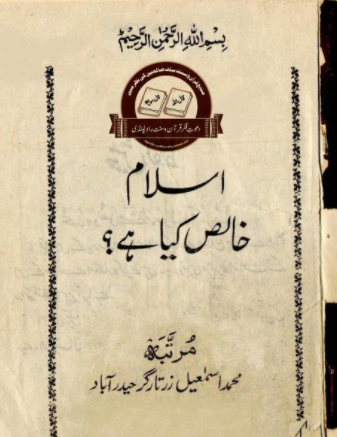 بسم الله الرحمن الرحيم
دعوت فکر قرآن و سنت راولپنڈی
اسلام
خالص کیا ہے؟
مرتبہ
محمد اسمٰعیل زرتارگر حیدرآباد